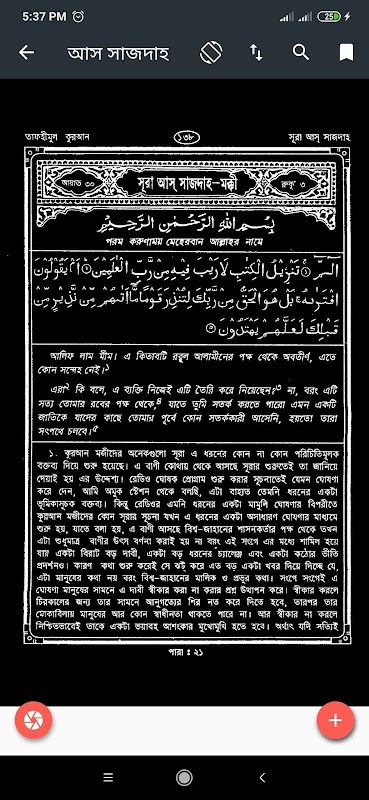 5:37 PM
25
আস সাজদাহ
তাফহীমুল কুরআন
১৩৮
সূরা আস্ সাজদাহ
আয়াত ৩০
সূরা আস্ সাজদাহ-মক্কী
রুকূ' ৩
بِسْمِ اللّٰهِ الرَّحْمٰنِ الرَّحِيْمِ
পরম করুণাময় মেহেরবান আল্লাহর নামে
الٓمّٓ ① تَنْزِيْلُ الْكِتٰبِ لَا رَيْبَ فِيْهِ مِنْ رَّبِّ الْعٰلَمِيْنَ ② اَمْ يَقُوْلُوْنَ
افْتَرٰىهُ ۚ بَلْ هُوَ الْحَقُّ مِنْ رَّبِّكَ لِتُنْذِرَ قَوْمًا مَّآ اَتٰىهُمْ مِّنْ نَّذِيْرٍ مِّنْ
قَبْلِكَ لَعَلَّهُمْ يَهْتَدُوْنَ ③
আলিফ লাম মীম। এ কিতাবটি রব্বুল আলামীনের পক্ষ থেকে অবতীর্ণ, এতে
কোন সন্দেহ নেই।১
এরা২ কি বলে, এ ব্যক্তি নিজেই এটি তৈরি করে নিয়েছেন?৩ না, বরং এটি
সত্য তোমার রবের পক্ষ থেকে,৪ যাতে তুমি সতর্ক করতে পারো এমন একটি
জাতিকে যাদের কাছে তোমার পূর্বে কোন সতর্ককারী আসেনি, হয়তো তারা
সৎপথে চলবে।৫
১. কুরআন মজীদের অনেকগুলো সূরা এ ধরনের কোন না কোন পরিচিতিমূলক
বক্তব্য দিয়ে শুরু হয়েছে। এ বাণী কোথায় থেকে আসছে সূরার শুরুতেই তা জানিয়ে
দেয়াই হয় এর উদ্দেশ্য। রেডিও ঘোষক প্রোগ্রাম শুরু করার সূচনাতেই যেমন ঘোষণা
করে দেন, আমি অমুক ষ্টেশন থেকে বলছি, এটা বাহ্যত তেমনি ধরনের একটা
ভূমিকাসূচক বক্তব্য। কিন্তু রেডিওর এমনি ধরনের একটা মামুলী ঘোষণার বিপরীতে
কুরআন মজীদের কোন সূরার সূচনা যখন এ ধরনের একটা অসাধারণ ঘোষণার মাধ্যমে
শুরু হয়, যাতে বলা হয়, এ বাণী আসছে বিশ্ব-জাহানের শাসনকর্তার পক্ষ থেকে তখন
এটা শুধুমাত্র বাণীর উৎস বর্ণনা করাই হয় না বরং এই সংগে এর মধ্যে শামিল হয়ে
যায় একটা বিরাট বড় দাবী, একটা বড় ধরনের চ্যালেঞ্জ এবং একটা কঠোর ভীতি
প্রদর্শনও। কারণ কথা শুরু করেই সে ঝট্ করে এত বড় একটা খবর দিয়ে দিচ্ছে যে,
এটা মানুষের কথা নয় বরং বিশ্ব-জাহানের মালিক ও প্রভুর কথা। সংগে সংগেই এ
ঘোষণা মানুষের সামনে এ দাবী স্বীকার করা না করার প্রশ্ন উত্থাপন করে। স্বীকার করলে
চিরকালের জন্য তার সামনে আনুগত্যের শির নত করে দিতে হবে, তারপর তার
মোকাবিলায় মানুষের আর কোন স্বাধীনতা থাকতে পারে না। আর স্বীকার না করলে
নিশ্চিতভাবেই তাকে একটা ভয়াবহ আশংকার মুখোমুখি হতে হবে। অর্থাৎ যদি সত্যিই
পারা : ২১